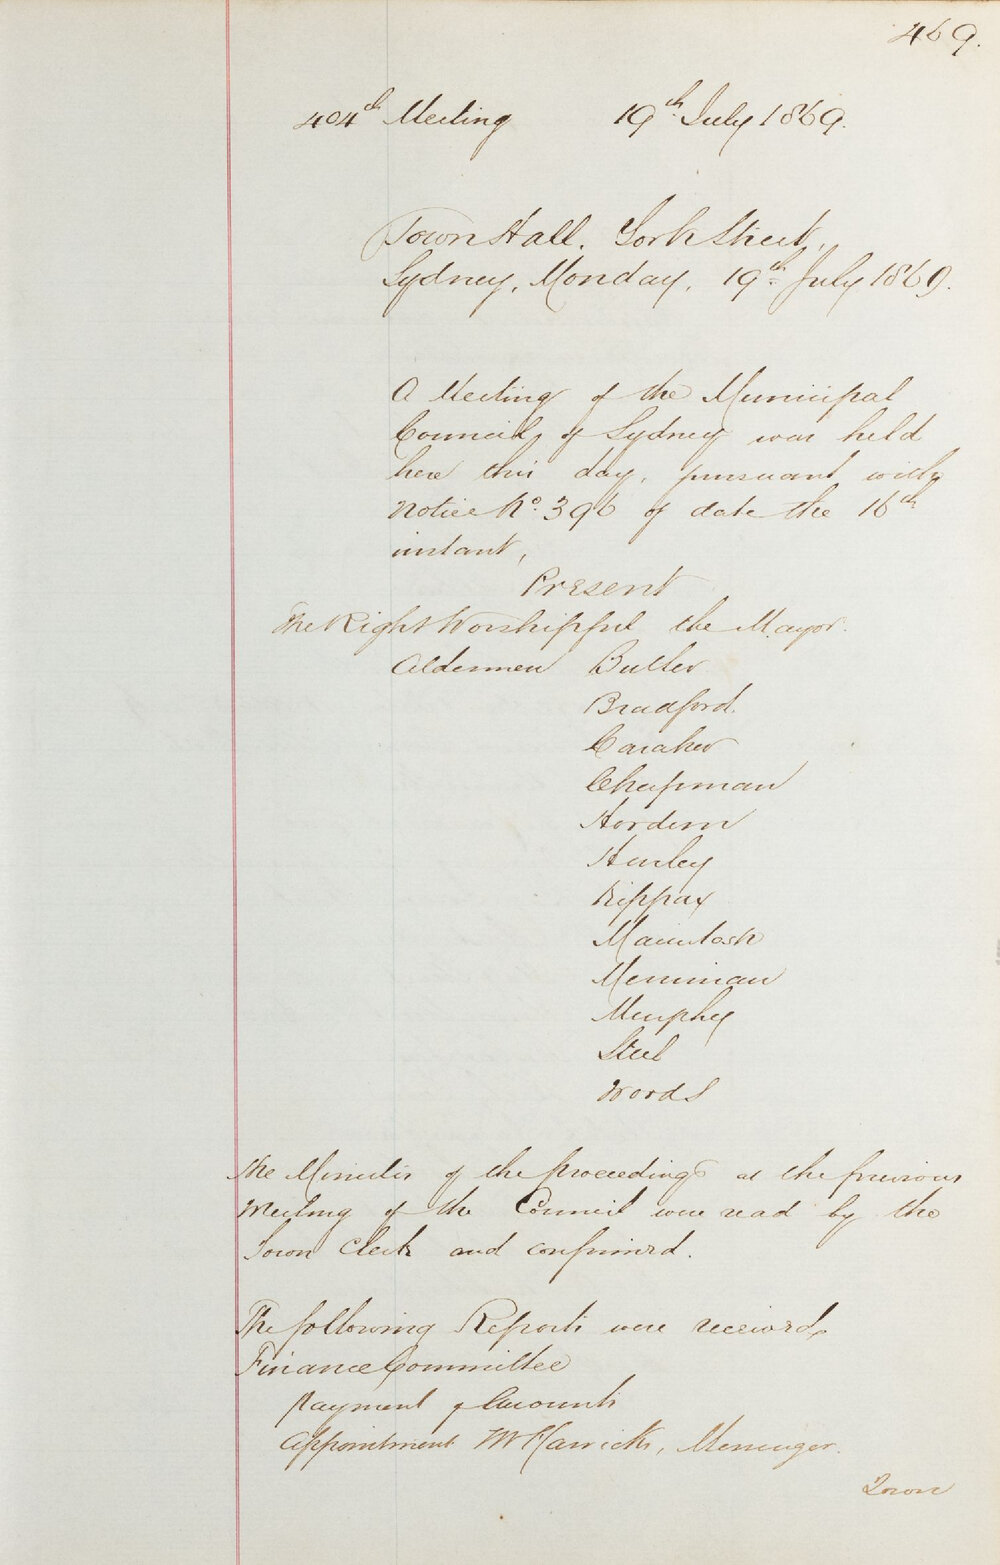 469.
404th Meeting 19th July 1869.
Town Hall. York Street,
Sydney, Monday, 19th July 1869.
A Meeting of the Municipal
Council of Sydney was held
here this day, pursuant with
Notice No. 396 of date the 16th
instant,
Present
The Right Worshipful the Mayor.
Aldermen Butler
Bradford.
Caraher
Chapman
Hordern
Hurley
Kippax
Macintosh
Merriman
Murphy
Steel
Woods
The Minutes of the proceedings at the previous
Meeting of the Council were read by the
Town Clerk and confirmed.
The following Reports were received,
Finance Committee
Payment of Accounts
Appointment Messenger.
Town